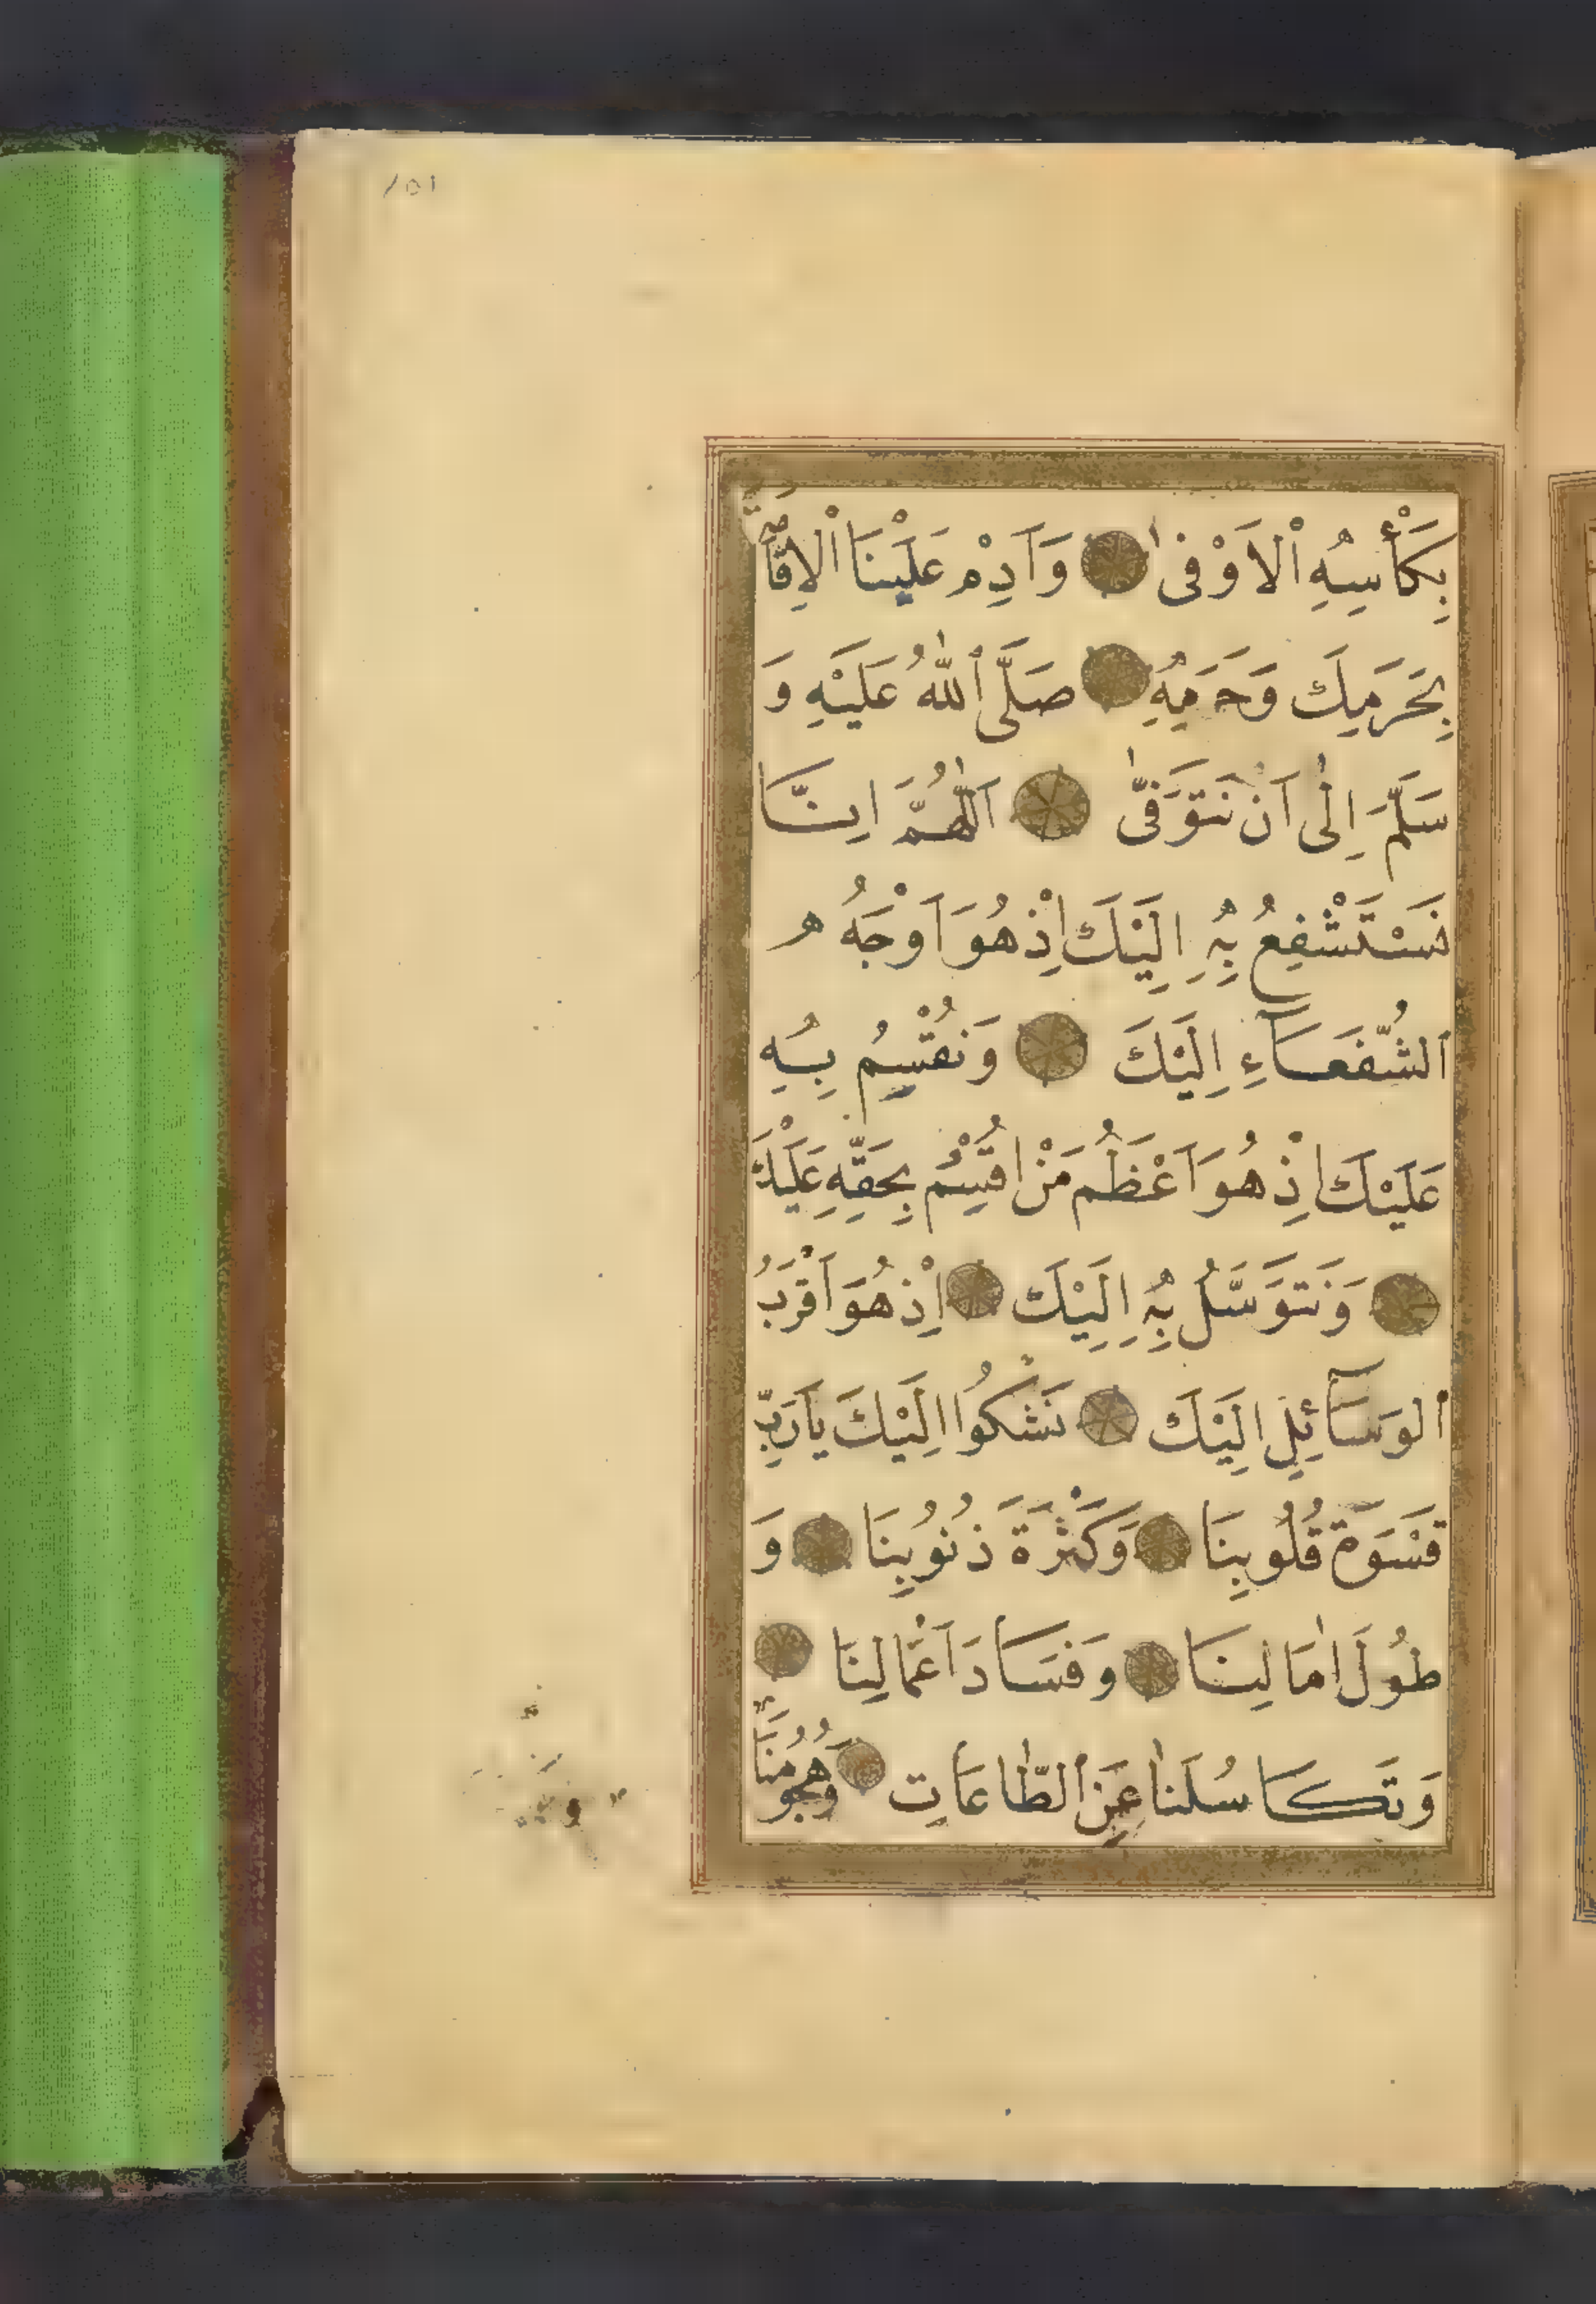 101
بِكَأْسِهِ الْاَوْفٰى وَاَدِمْ عَلَيْنَا الْاِقَامَةَ
بِحَرَمِكَ وَحَرَمِهِ صَلَّى اللّٰهُ عَلَيْهِ وَ
سَلَّمَ اِلٰى اَنْ نَتَوَفّٰى اَللّٰهُمَّ اِنَّا
نَسْتَشْفِعُ بِهِ اِلَيْكَ اِذْ هُوَ اَوْجَهُ
الشُّفَعَآءِ اِلَيْكَ وَنُقْسِمُ بِهِ
عَلَيْكَ اِذْ هُوَ اَعْظَمُ مَنْ اُقْسِمَ بِحَقِّهِ عَلَيْكَ
وَنَتَوَسَّلُ بِهِ اِلَيْكَ اِذْ هُوَ اَقْرَبُ
الوَسَآئِلِ اِلَيْكَ نَشْكُوا اِلَيْكَ يَارَبِّ
قَسْوَةَ قُلُوبِنَا وَكَثْرَةَ ذُنُوبِنَا وَ
طُولَ اٰمَالِنَا وَفَسَادَ اَعْمَالِنَا
وَتَكَاسُلَنَا عَنِ الطَّاعَاتِ وَهُجُومَنَا